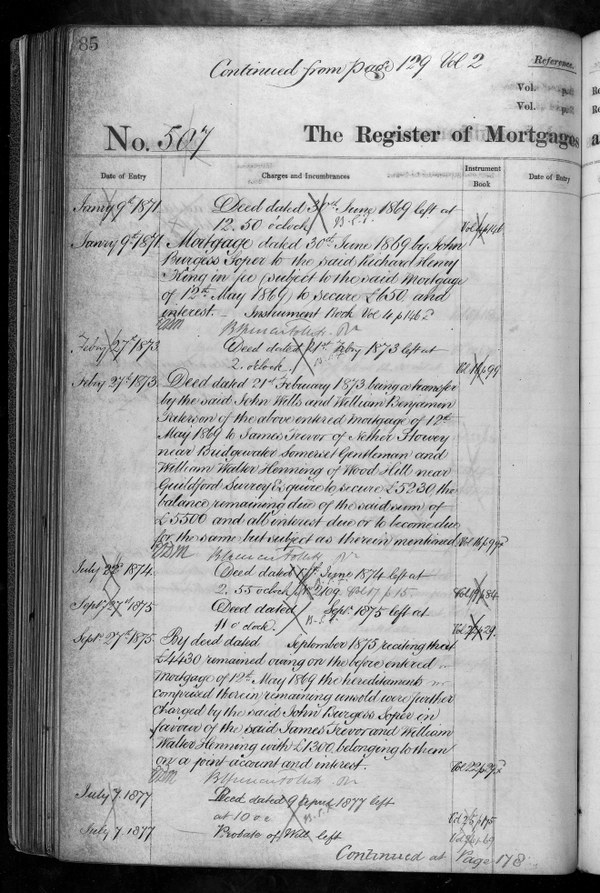 85
Continued from page 129 Vol 2
Reference.
Vol. p.
Vol. p.
No. 507 The Register of Mortgages
Date of Entry Charges and Incumbrances Instrument Book Date of Entry
Janry 9th 1871 Deed dated 30th June 1869 left at
12.50 o'clock B.S.T. Vol 4 p 146
Janry 9th 1871. Mortgage dated 30th June 1869 by John
Burgess Soper to the said Richard Henry
King in fee (subject to the said Mortgage
of 12th May 1869) to secure £650 and
interest. Instrument Book Vol 4 p 146
Febry 27th 1873 Deed dated 21st Febry 1873 left at
2. o'clock. Vol 16 p 99
Febry 27th 1873. Deed dated 21st February 1873 being a transfer
by the said John Wells and William Benjamin
Paterson of the above entered Mortgage of 12th
May 1869 to James Trevor of Nether Stowey
near Bridgewater Somerset Gentleman and
William Walter Henning of Wood Hill near
Guildford Surrey Esquire to secure £5230 the
balance remaining due of the said sum of
£5500 and all interest due or to become due
for the same but subject as therein mentioned Vol 16 p 99
July 22d 1874. Deed dated June 1874 left at
2.55 o'clock Vol 17 p 15. Vol 19 p 84
Septr 27th 1875 Deed dated Septr 1875 left at
11 o'clock. Vol 22 p 29.
Septr 27th 1875 By deed dated September 1875, reciting that
£4430 remained owing on the before entered
Mortgage of 12th May 1869 the hereditaments
comprised therein remaining unsold were further
charged by the said John Burgess Soper in
favour of the said James Trevor and William
Walter Henning with £1300, belonging to them
on a joint account and interest. Vol 22 p 29
July 7. 1877 Deed dated 9 April 1877 left
at 10 o'c
July 7. 1877 Probate of Will left
Continued at Page 178